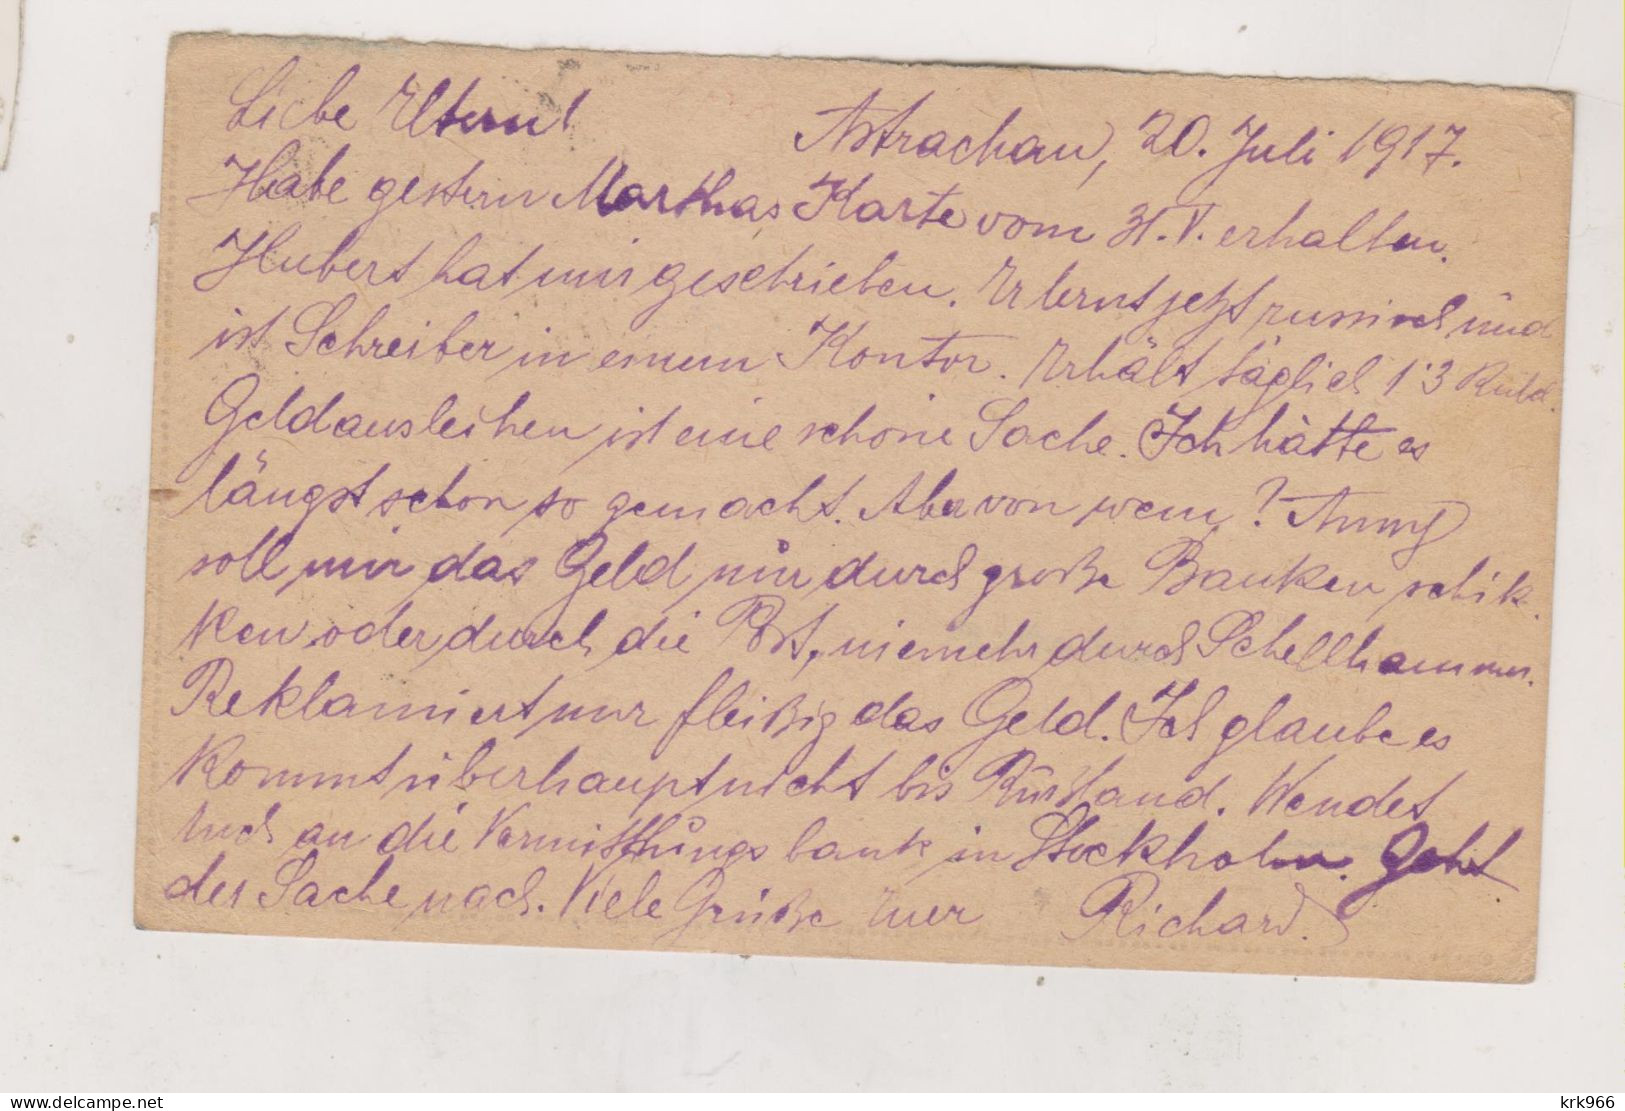 Liebe Eltern!
Astrachan, 20. Juli 1917.
Habe gestern Marthas Karte vom 31.V. erhalten.
Hubert hat mir geschrieben. Er lernt jetzt russisch und
ist Schreiber in einem Kontor. Erhält täglich 1·3 Rubl.
Geldausleihen ist eine schöne Sache. Ich hätte es
längst schon so gemacht. Aber von wem?
soll mir das Geld nur durch große Banken schik-
ken oder durch die Post, niemehr durch Schellhammer.
Reklamiert nur fleißig das Geld. Ich glaube es
kommt überhaupt nicht bis Rußland. Wendet
Euch an die Vermittlungsbank in Stockholm. Geht
der Sache nach. Viele Grüße Euer Richard.
Delcampe.net
krk966